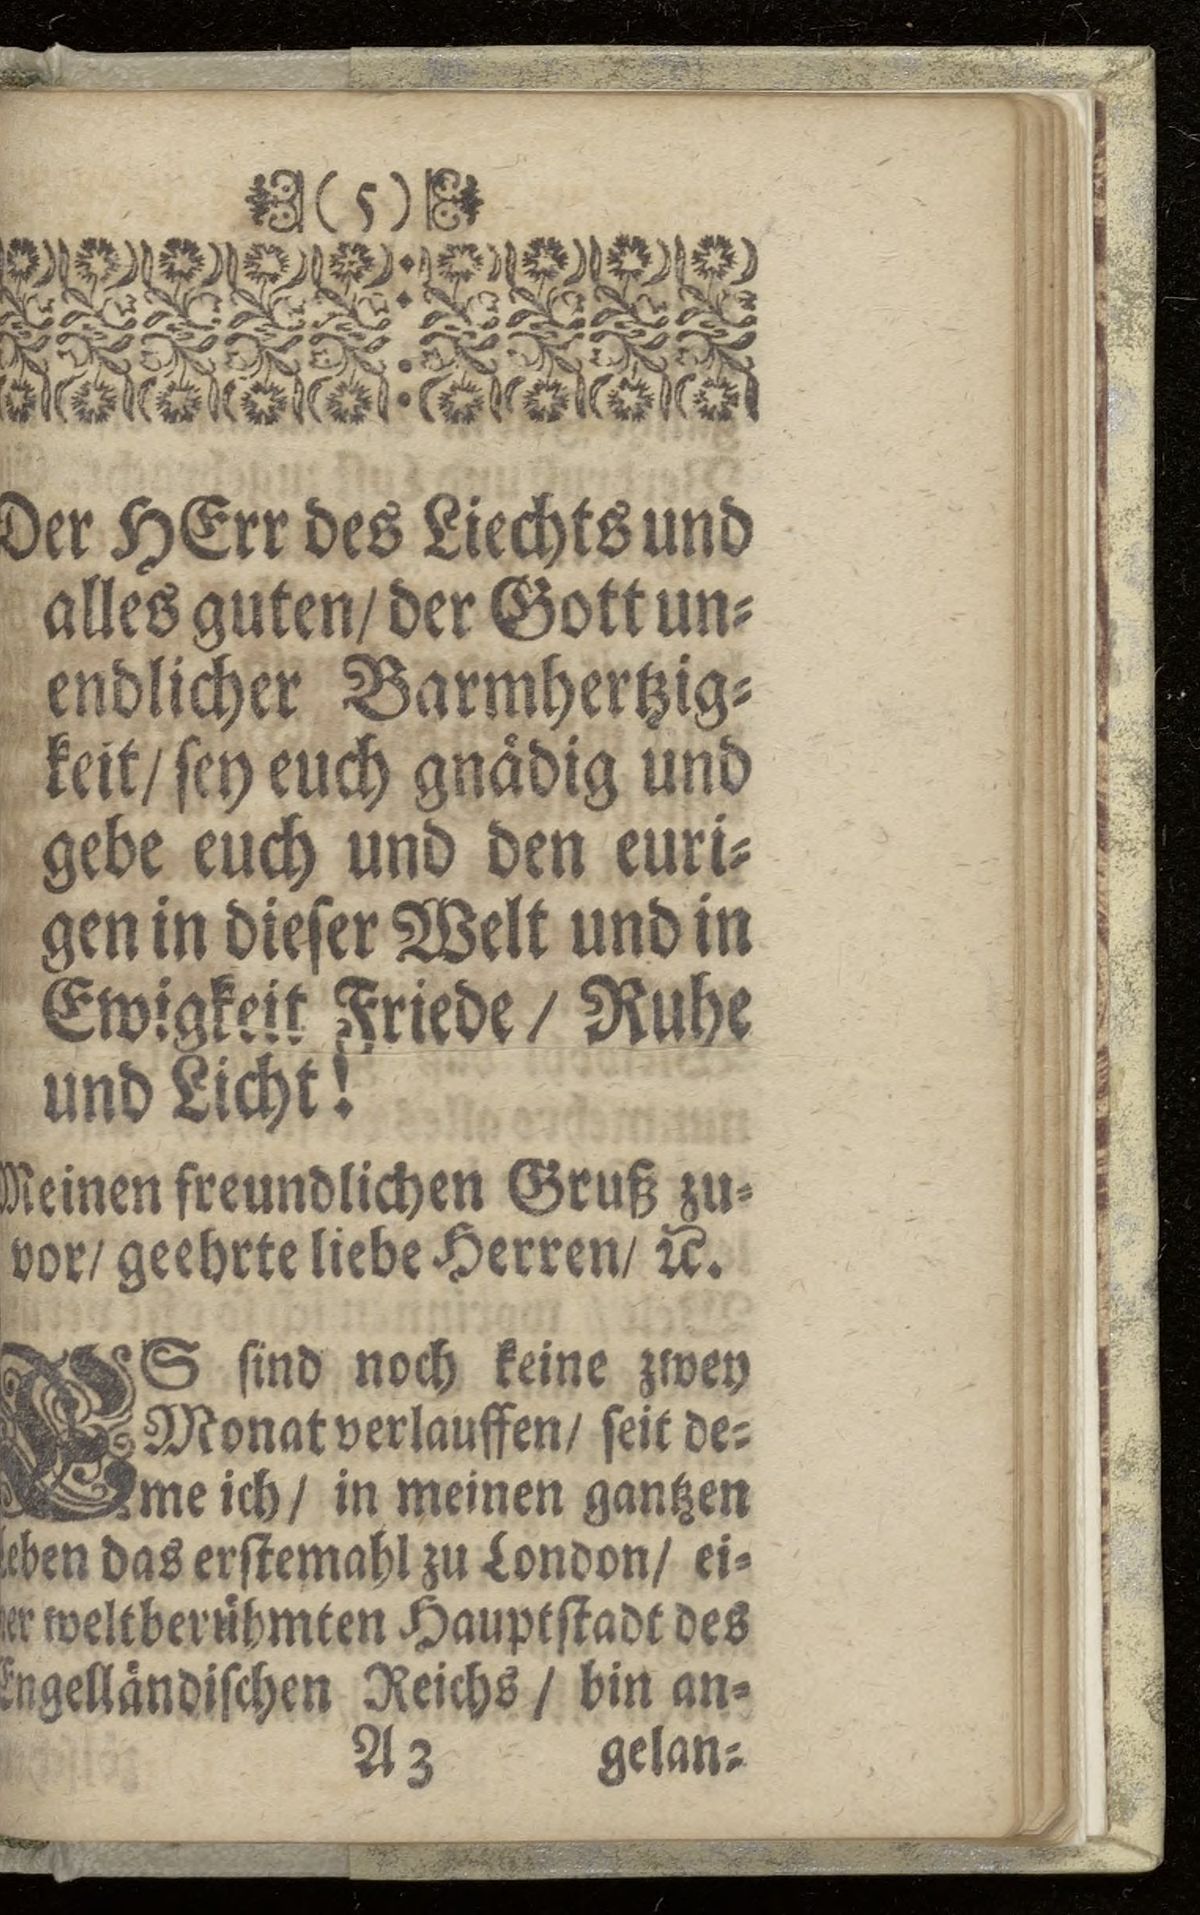 ( 5 )
Der HErr des Liechts und
alles guten/ der Gott un⸗
endlicher Barmhertzig⸗
keit/ ſey euch gnaͤdig und
gebe euch und den euri⸗
gen in dieſer Welt und in
Ewigkeit Friede / Ruhe
und Licht!
Meinen freundlichen Gruß zu⸗
vor/ geehrte liebe Herren/ ꝛc.
ES ſind noch keine zwey
Monat verlauffen/ ſeit de⸗
me ich/ in meinen gantzen
Leben das erſtemahl zu London/ ei⸗
ner weltberuͤhmten Hauptſtadt des
Engellaͤndiſchen Reichs / bin an⸗
A3 gelan⸗